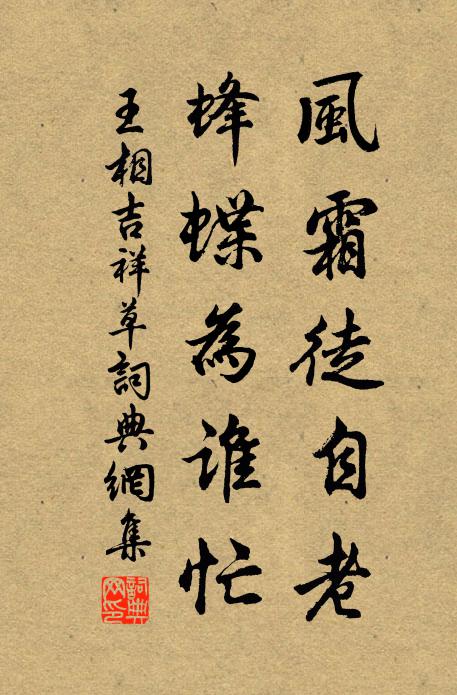 風霜徒自老
蜂蝶為誰忙
王相吉祥草詞典網集
詞典網印